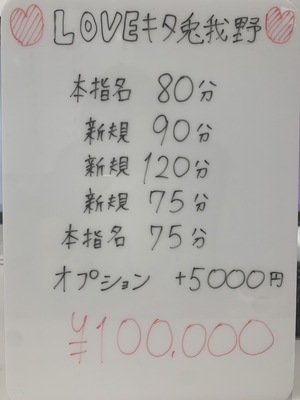 LOVEキタ兎我野
本指名 80分
新規 90分
新規 120分
新規 75分
本指名 75分
オプション +5000円
¥100,000